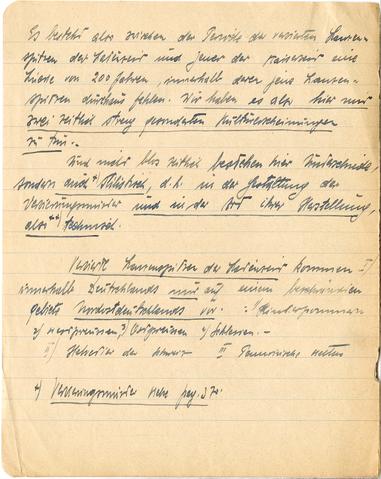 Es besteht also zwischen der Periode der verzierten Lanzen-
spitzen der Latènezeit und jener der Kaiserzeit eine
Lücke von 200 Jahren, innerhalb derer jene Lanzen-
spitzen durchaus fehlen. Wir haben es also hier mit
zwei zeitlich streng gesonderten Kulturerscheinungen
zu tun.-
Und nicht blos zeitlich bestehen hier Unterschiede,
sondern auch *) stilistisch, d. h. in der Gestaltung der
Verzierungsmuster und in der Art ihrer Herstellung,
also **) technisch.
Verzierte Lanzenspitzen der Latènezeit kommen I)
innerhalb Deutschlands nur auf einem beschränkten
gebiete Nordostdeutschlands vor. 1) Hinterpommern
2) Westpreussen, 3) Ostpreussen 4) Schlesien.-
II) der Schweiz III
*) Verzierungsmuster siehe pag. 37.